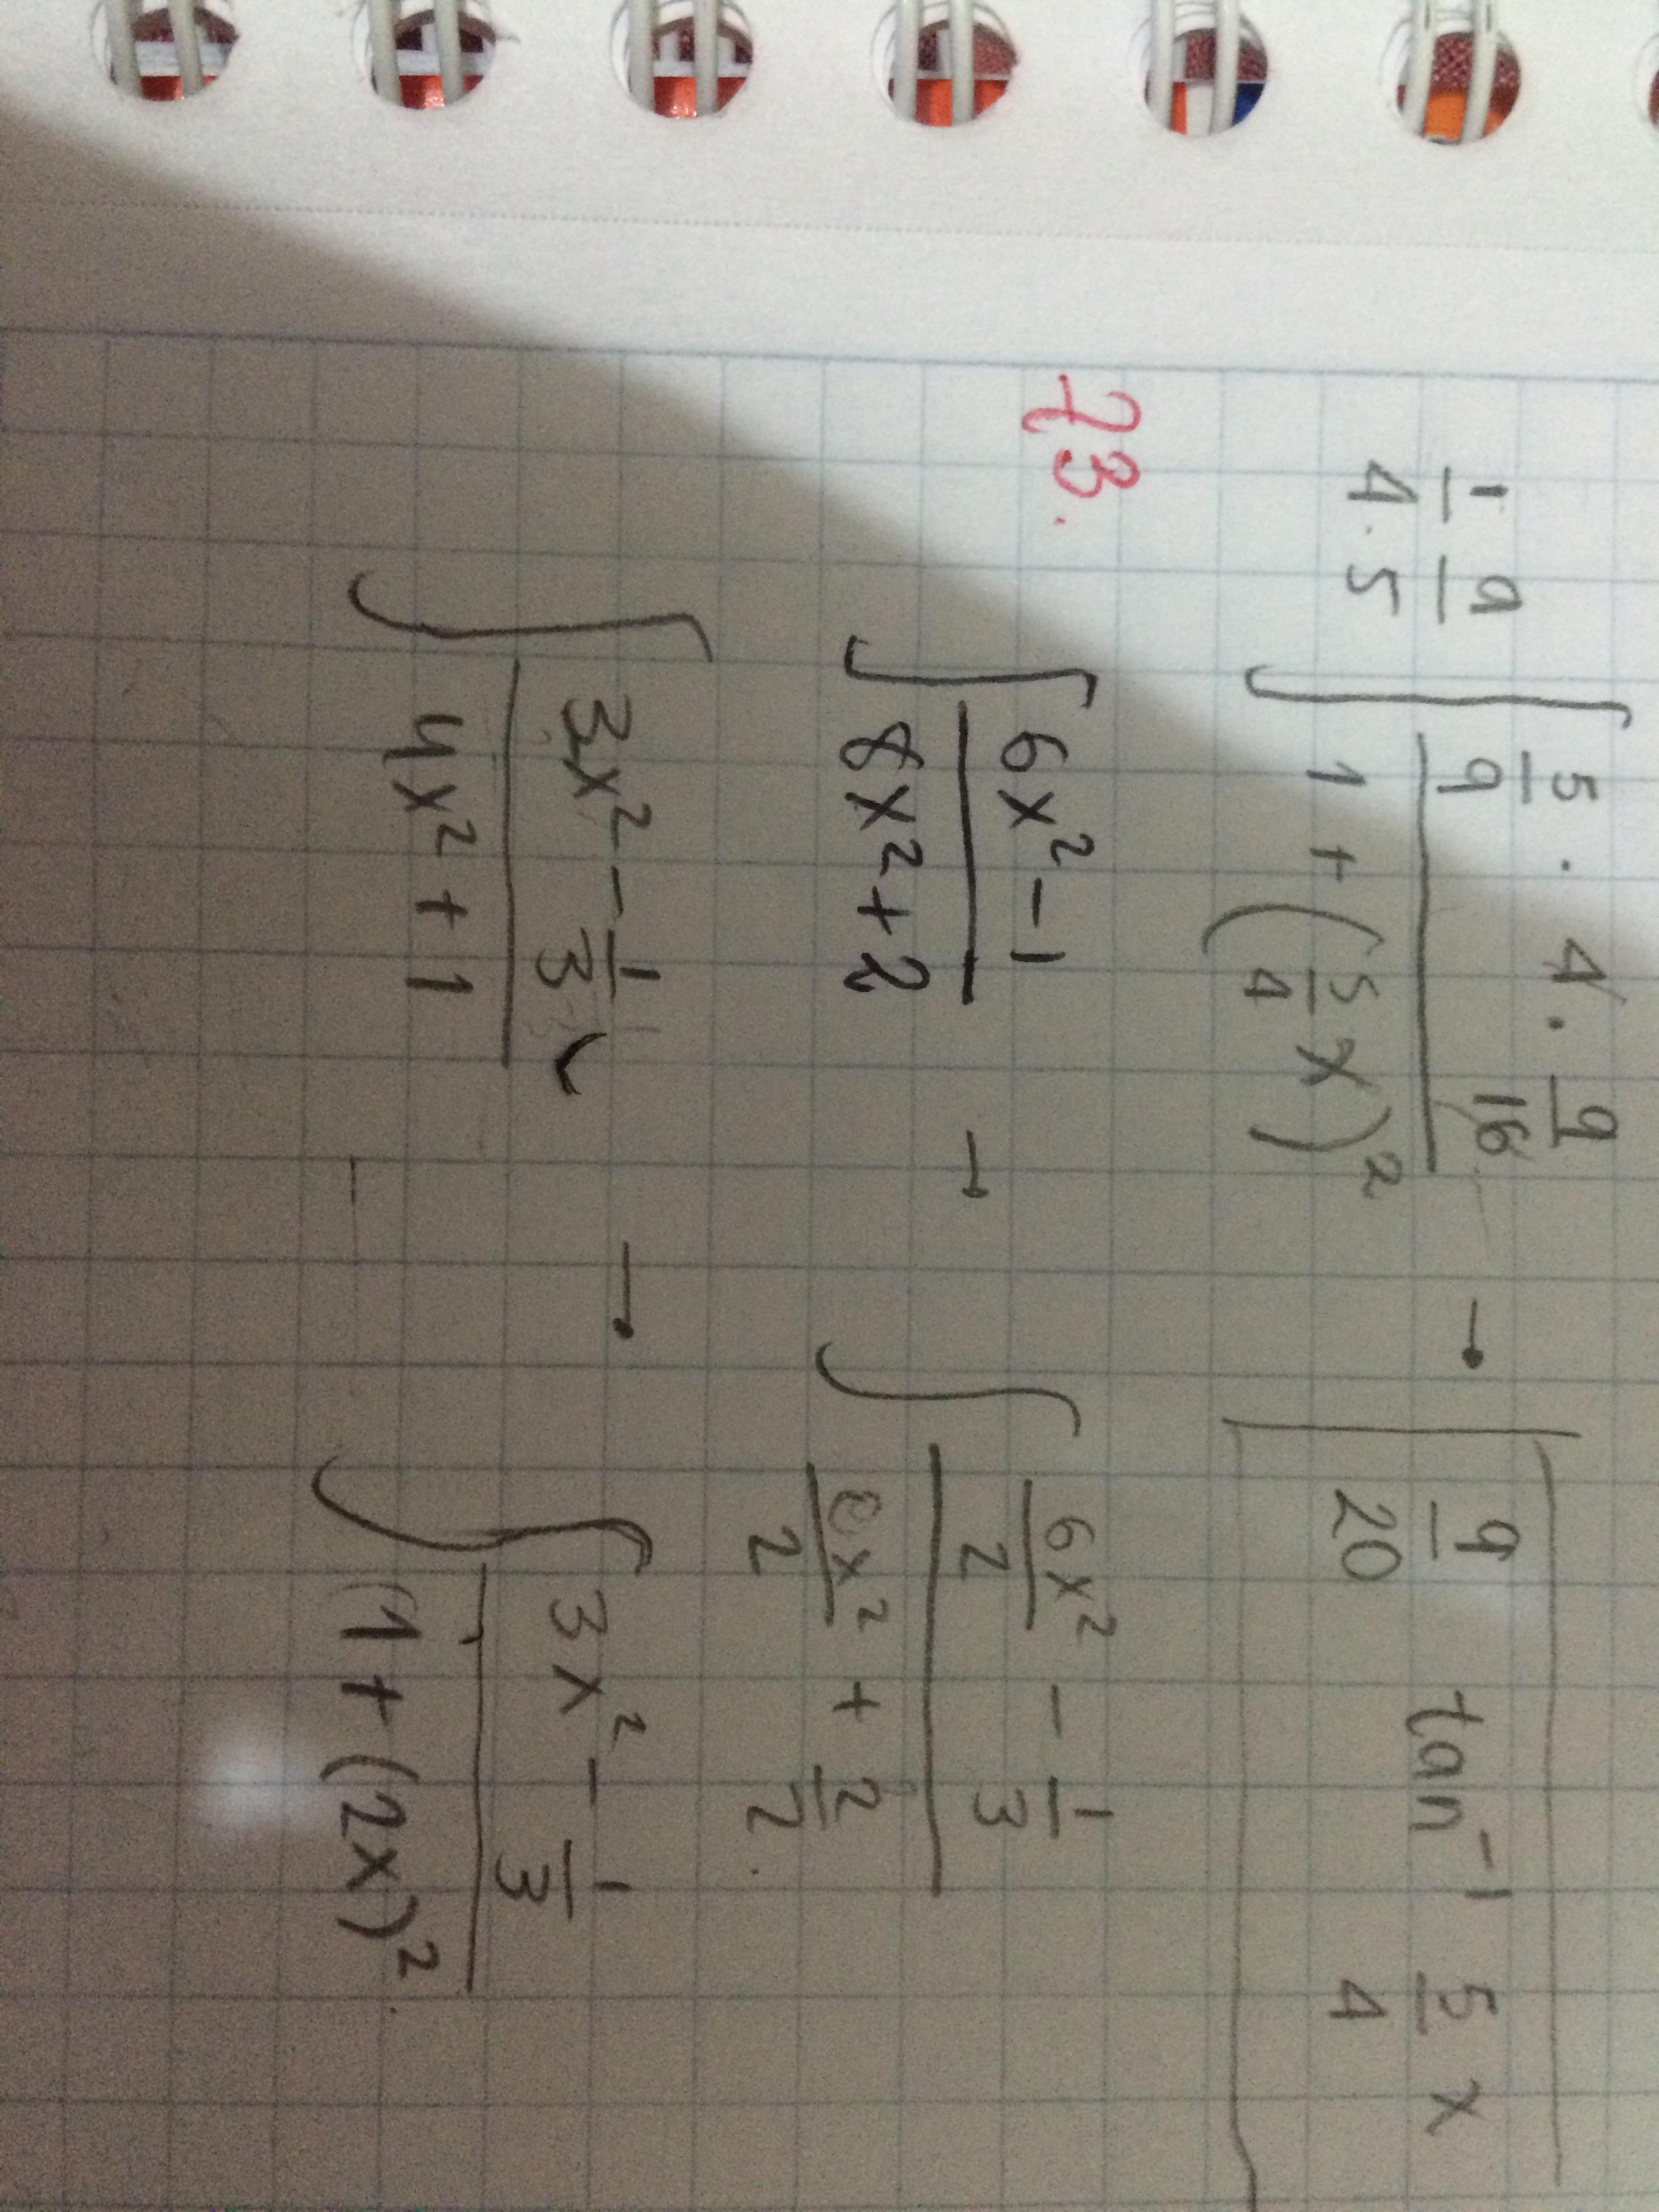 1/4 · 9/5 ∫ (5/9 · 4 · 9/16) / (1 + (5/4 x)²) → 9/20 tan⁻¹ 5/4 x
73.
∫ (6x² - 1) / (8x² + 2) → ∫ (6x²/2 - 1/3) / (8x²/2 + 2/2)
∫ (3x² - 1/3) / (4x² + 1) → ∫ (3x² - 1/3) / (1 + (2x)²)